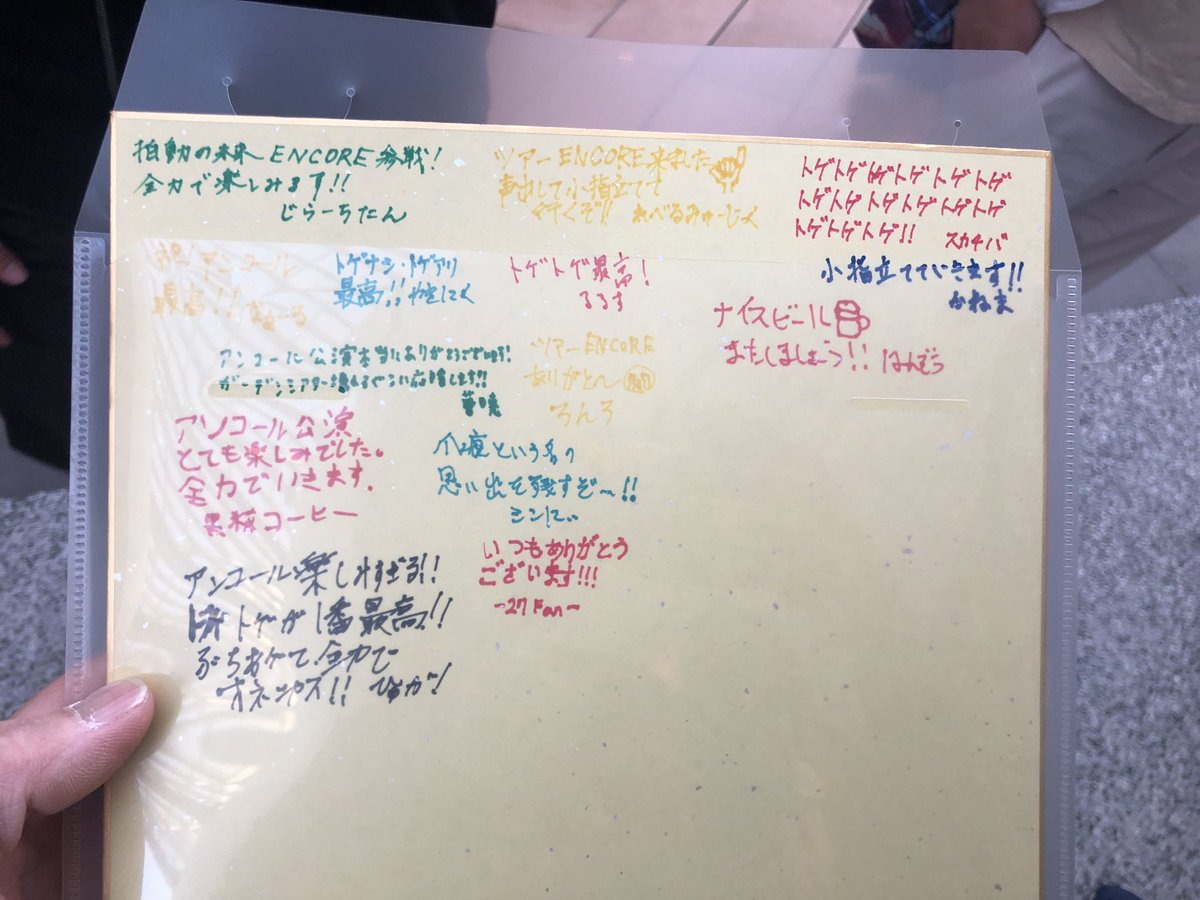 拍動の未来 ENCORE 参戦!
全力で楽しみます!!
じらーちたん
ツアーENCORE 来ました
声出して小指立てて
行くぞ!! れべるみゅーじっく
トゲトゲトゲトゲトゲトゲ
トゲトゲトゲトゲトゲトゲ
トゲトゲトゲ!! スカチバ
祝!アンコール
最高!!
トゲナシ・トゲアリ
最高!!
トゲトゲ最高!
るるす
小指立てていきます!!
かねま
ナイスビール
またしましょーっ!! はんぞう
アンコール公演本当にありがとうございます!
ガーデンシアター
ツアーENCORE
ありがと〜
ろんろ
アンコール公演
とても楽しみでした。
全力でいきます。
黒糖コーヒー
爪痕という名の
思い出を残すぞ〜!!
ミンにぃ
いつもありがとう
ございます!!!
-27Fan-
アンコール楽しみすぎる!!
トゲトゲが1番最高!!
ぶちあげて全力で
オネシャス!!